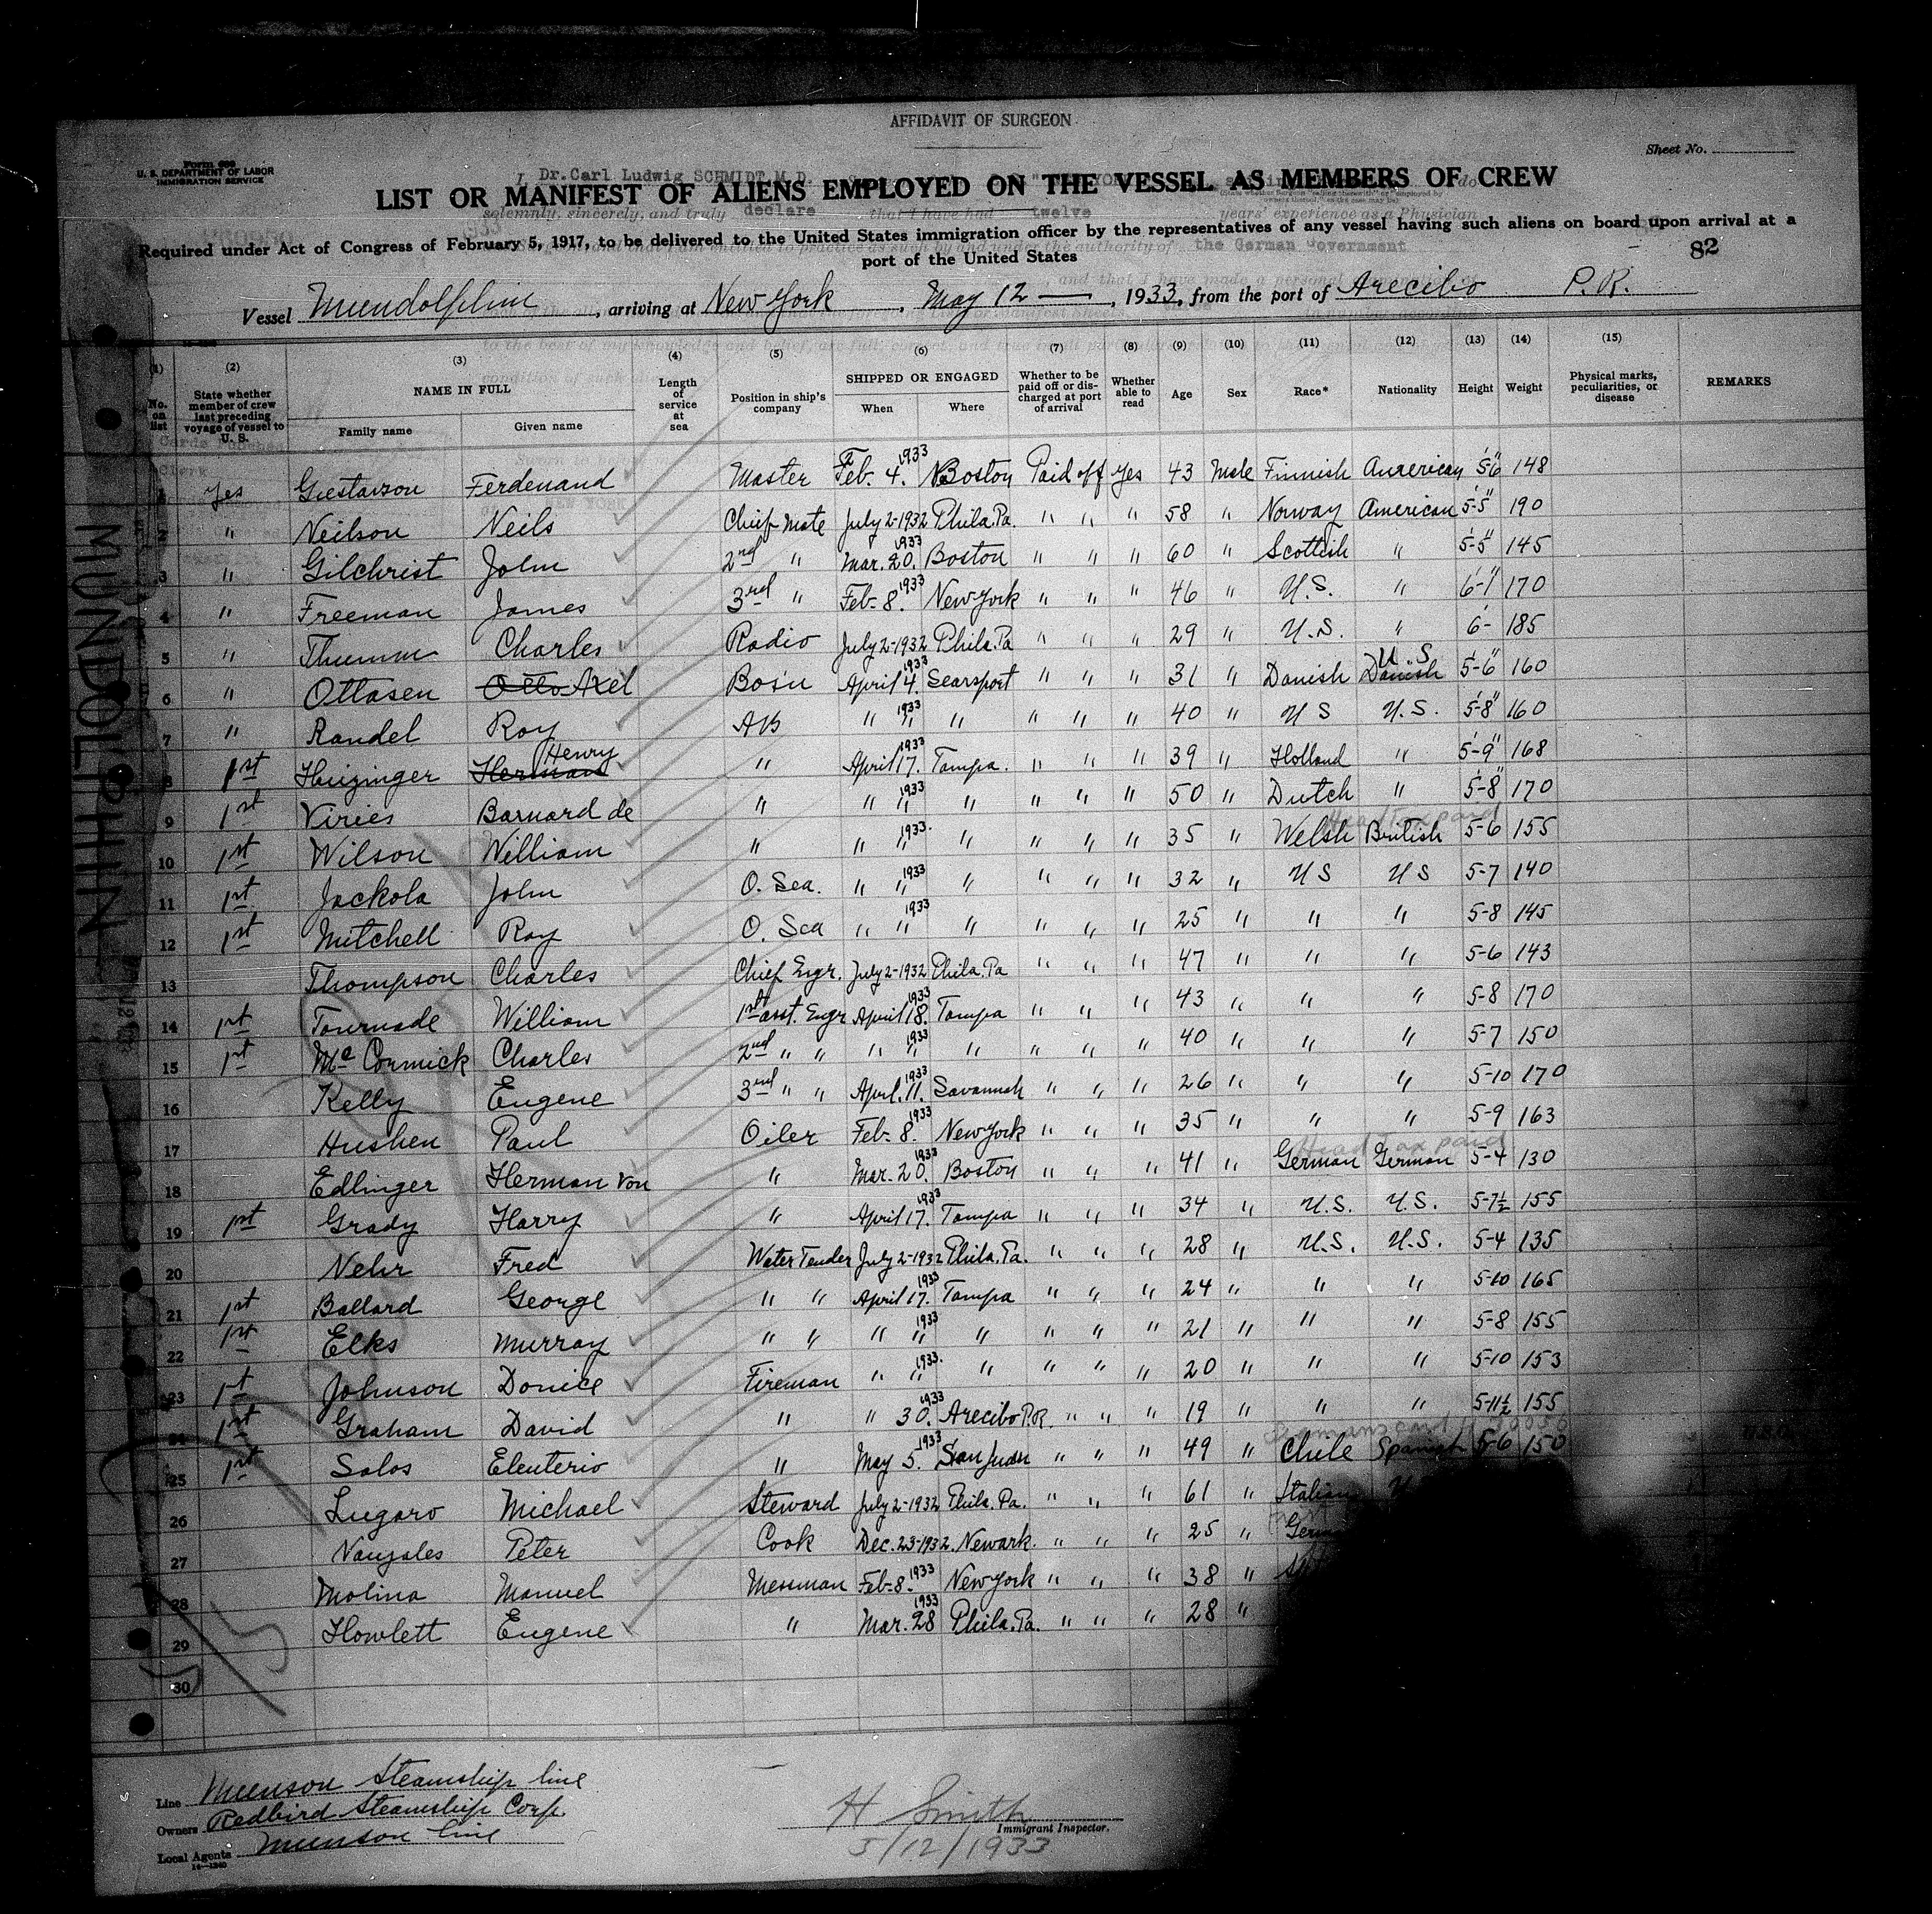 AFFIDAVIT OF SURGEON
Sheet No.
Form 680
U. S. DEPARTMENT OF LABOR
IMMIGRATION SERVICE
I Dr. Carl Ludwig SCHMIDT, M.D.
LIST OR MANIFEST OF ALIENS EMPLOYED ON THE VESSEL AS MEMBERS OF CREW
solemnly, sincerely, and truly declare that I have had twelve years' experience as a Physician
Required under Act of Congress of February 5, 1917, to be delivered to the United States immigration officer by the representatives of any vessel having such aliens on board upon arrival at a
port of the United States
the German Government
82
Vessel Mundolphin, arriving at New York, May 12 —, 1933, from the port of Arecibo P.R.
(1) (2) (3) (4) (5) (6) (7) (8) (9) (10) (11) (12) (13) (14) (15)
No. on list
State whether member of crew last preceding voyage of vessel to U. S.
NAME IN FULL
Family name
Given name
Length of service at sea
Position in ship's company
SHIPPED OR ENGAGED
When
Where
Whether to be paid off or discharged at port of arrival
Whether able to read
Age
Sex
Race*
Nationality
Height
Weight
Physical marks, peculiarities, or disease
REMARKS
1 yes Gustavson Ferdenand Master Feb. 4. 1933 Boston Paid off yes 43 Male Finnish American 5'6" 148
2 " Neilson Neils Chief Mate July 2-1932 Phila. Pa. " " " 58 " Norway American 5-5" 190
3 " Gilchrist John 2nd " Mar. 20. 1933 Boston " " " 60 " Scottish " 5-5" 145
4 " Freeman James 3rd " Feb- 8. 1933 New York " " " 46 " U.S. " 6-1" 170
5 " Thumm Charles Radio July 2-1932 Phila. Pa " " " 29 " U.S. " 6- 185
6 " Ottasen Otto Axel Bos'n April 4. 1933 Searsport " " " 31 " Danish Danish U.S 5-6" 160
7 " Randel Roy AB " " 1933 " " " " 40 " U S U.S. 5-8" 160
8 1st Huizinger Herman Henry " April 17. 1933 Tampa. " " " 39 " Holland " 5-9" 168
9 1st Viries Barnard de " " " 1933 " " " " 50 " Dutch " 5-8" 170
Head Tax paid
10 1st Wilson William " " " 1933. " " " " 35 " Welsh British 5-6 155
11 1st Jackola John O. Sea. " " 1933 " " " " 32 " U S U S 5-7 140
12 1st Mitchell Roy O. Sea " " 1933 " " " " 25 " " " 5-8 145
13 Thompson Charles Chief Engr. July 2-1932 Phila. Pa " " " 47 " " " 5-6 143
14 1st Tournade William 1st asst. Engr April 18. 1933 Tampa " " " 43 " " " 5-8 170
15 1st Mc Cormick Charles 2nd " " " " 1933 " " " " 40 " " " 5-7 150
16 Kelly Eugene 3rd " " April. 11. 1933 Savannah " " " 26 " " " 5-10 170
17 Hushen Paul Oiler Feb- 8. 1933 New York " " " 35 " " " 5-9 163
Head Tax paid
18 Edlinger Herman von " Mar. 20. 1933 Boston " " " 41 " German German 5-4 130
19 1st Grady Harry " April 17. 1933 Tampa " " " 34 " U.S. U.S. 5-7½ 155
20 Nehr Fred Water Tender July 2-1932 Phila. Pa. " " " 28 " U.S. U.S. 5-4 135
21 1st Ballard George " " April 17. 1933 Tampa " " " 24 " " " 5-10 165
22 1st Elks Murray " " " " 1933 " " " " 21 " " " 5-8 155
23 1st Johnson Donice Fireman " " 1933. " " " " 20 " " " 5-10 153
24 1st Graham David " " 30. 1933 Arecibo P.R. " " " 19 " " " 5-11½ 155
25 1st Salos Eleuterio " May 5. 1933 San Juan " " " 49 " Chile Spanish 5-6 150
26 Lugaro Michael Steward July 2-1932 Phila. Pa. " " " 61 " Italian
27 Nanzales Peter Cook Dec. 23-1932. Newark. " " " 25 "
28 Molina Manuel Messman Feb-8. 1933 New York " " " 38 "
29 Howlett Eugene " Mar. 28 1933 Phila. Pa. " " " 28 "
30
MUNDOLPHIN
Line Munson Steamship line
Owners Redbird Steamship Corp.
Local Agents Munson line
14—1240
H Smith
Immigrant Inspector.
5/12/1933